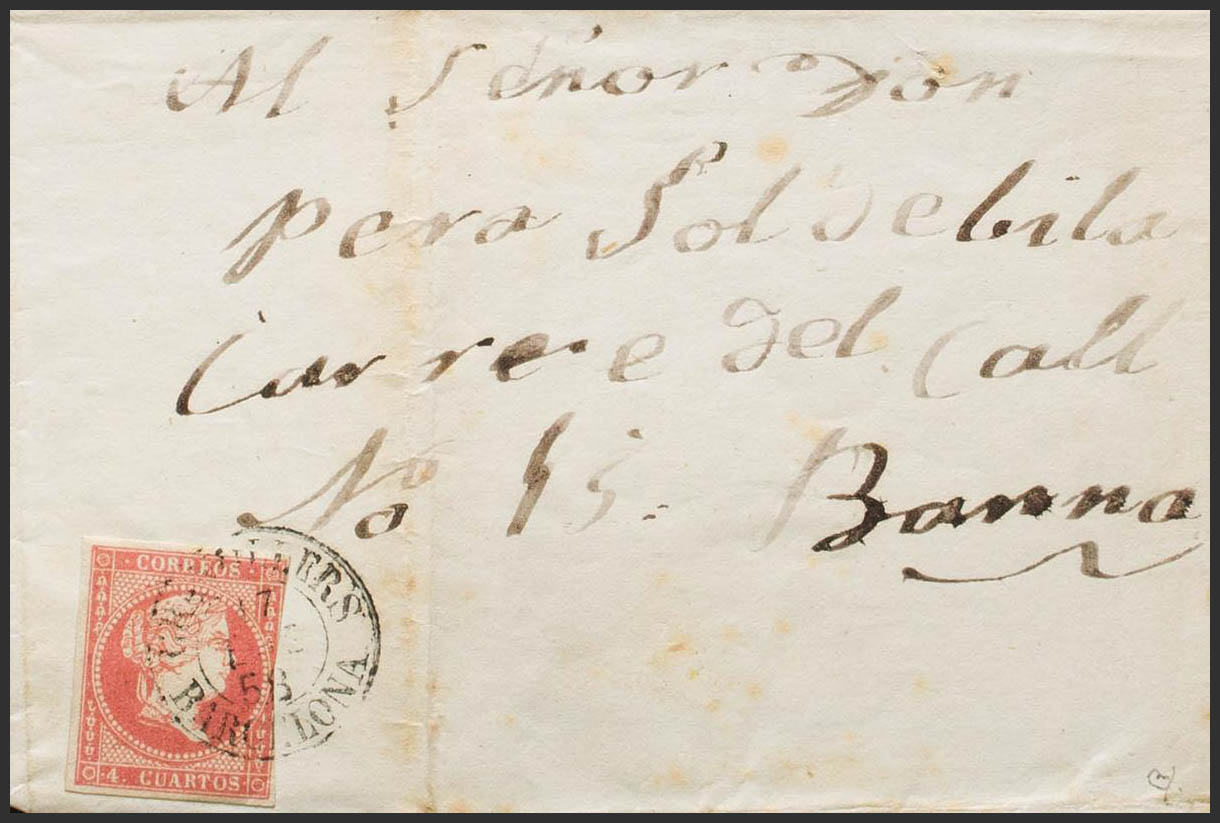 Al Señor Don
pera Soldebila
Carrere del Call
No 15. Banna
CORREOS
4. CUARTOS
17
58
BARCELONA